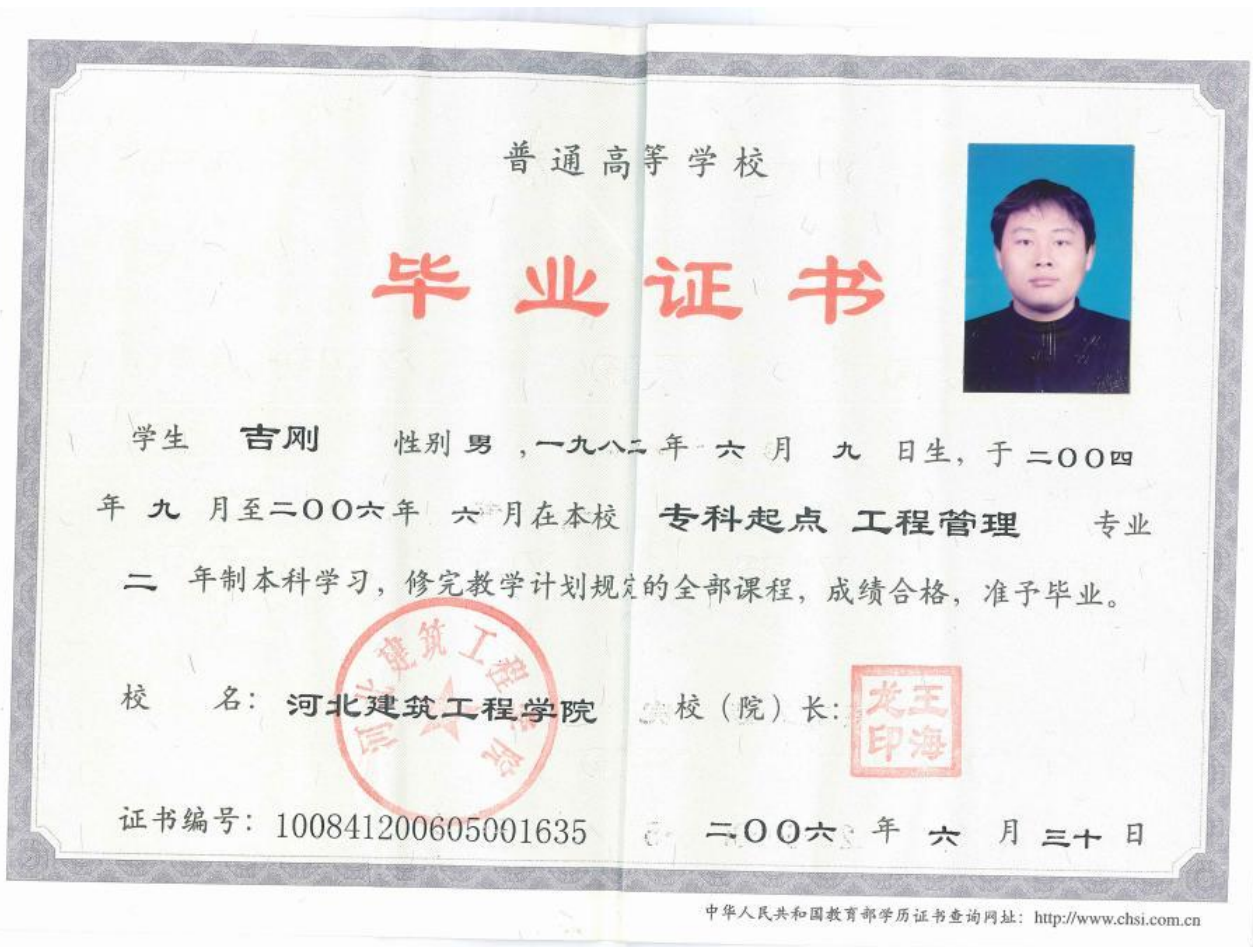 普通高等学校
毕业证书
学生 吉刚 性别 男 ,一九八二 年 六 月 九 日生, 于 二00四
年 九 月至二00六年 六 月在本校 专科起点 工程管理 专业
二 年制本科学习, 修完教学计划规定的全部课程, 成绩合格, 准予毕业。
河北建筑工程学院
校 名: 河北建筑工程学院 校（院）长:
王海龙印
证书编号: 100841200605001635 二00六 年 六 月 三十 日
中华人民共和国教育部学历证书查询网址: http://www.chsi.com.cn